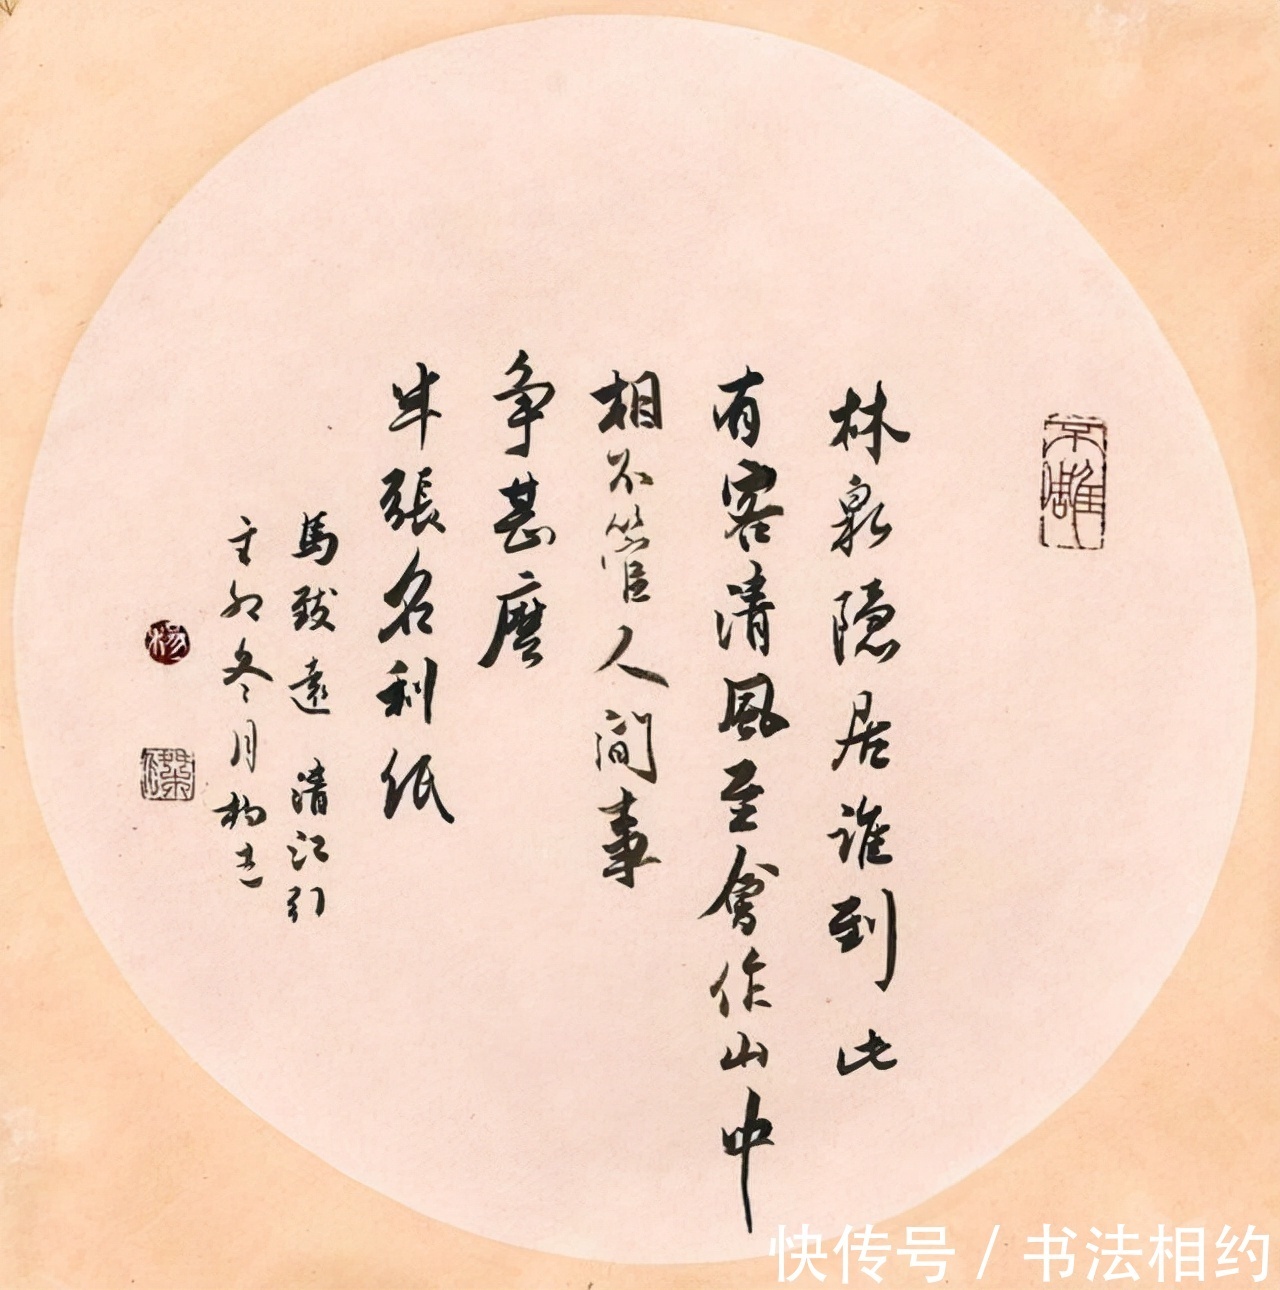 林泉隐居誰到此
有客清風至會作山中
相不管人间事
争甚麽
半張名利纸
馬致遠 清江引
辛卯冬月
快传号 / 书法相约